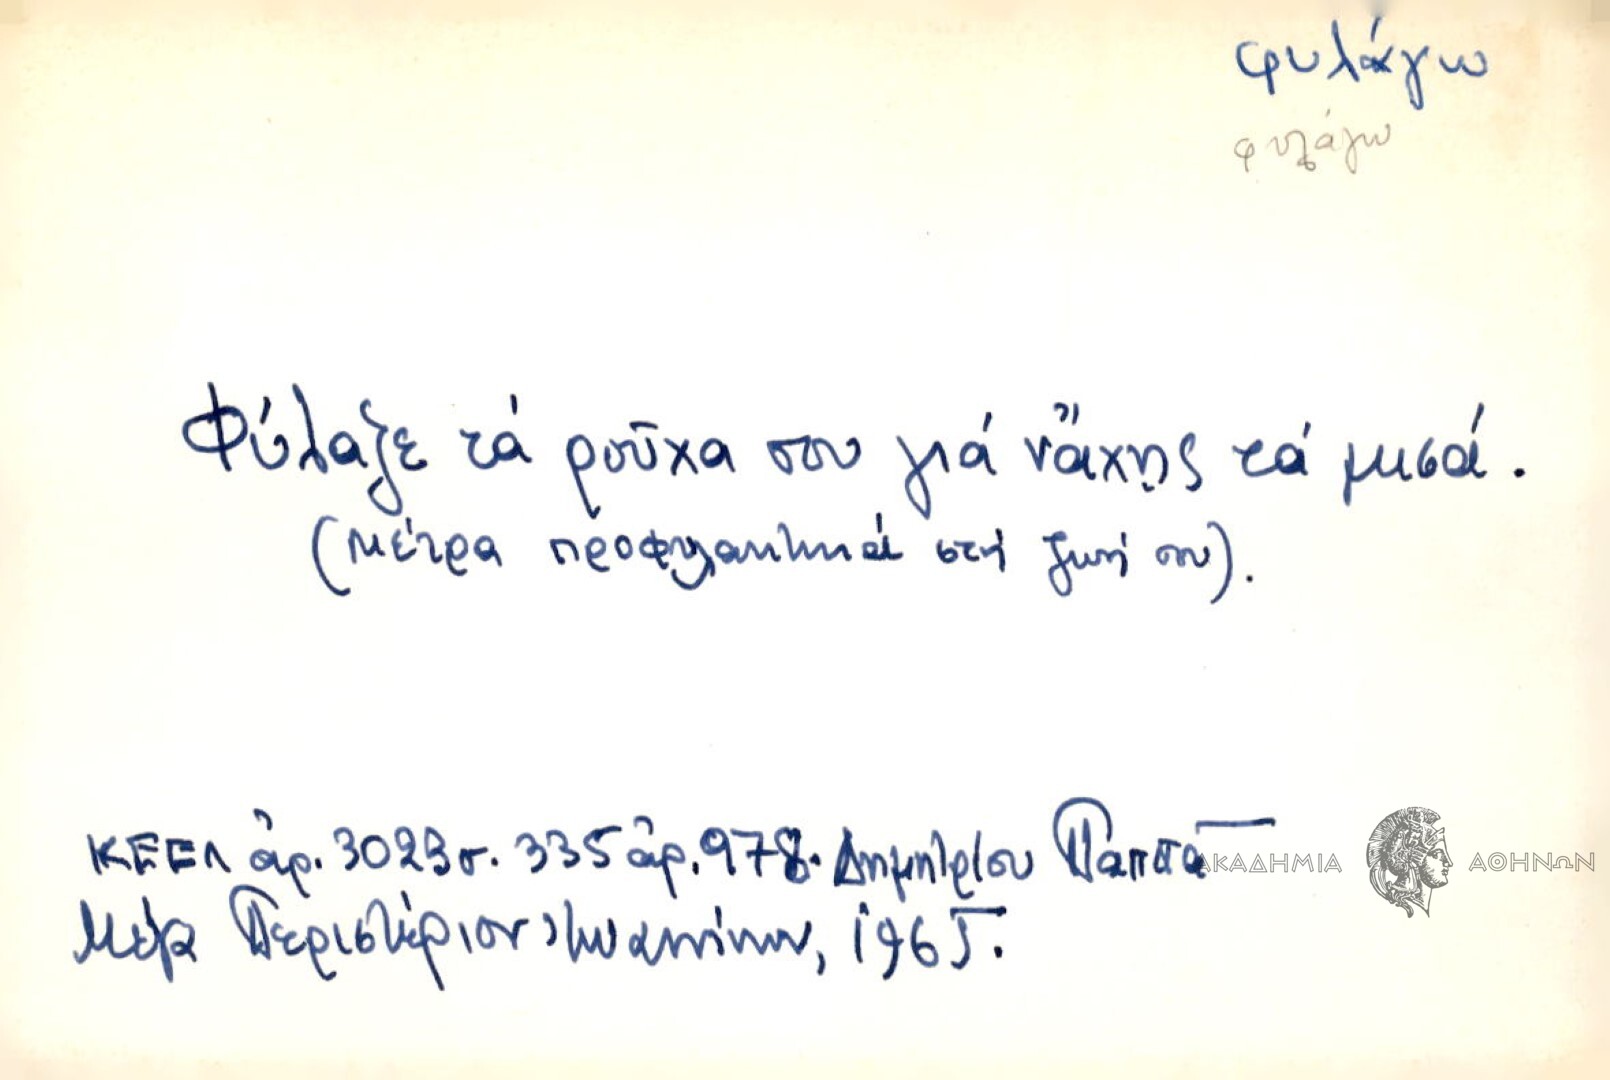 φυλάγω
φυλάγω
Φύλαξε τά ροῦχα σου γιά νἄχῃς τά μισά.
(μέτρα προφυλακτικά στή ζωή σου).
ΚΕΕΛ ἀρ. 3023 σ. 335 ἀρ. 978. Δημητρίου Παππᾶ
ΑΚΑΔΗΜΙΑ ΑΘΗΝΩΝ
Μέγα Περιστέριον Ἰωαννίνων, 1965.